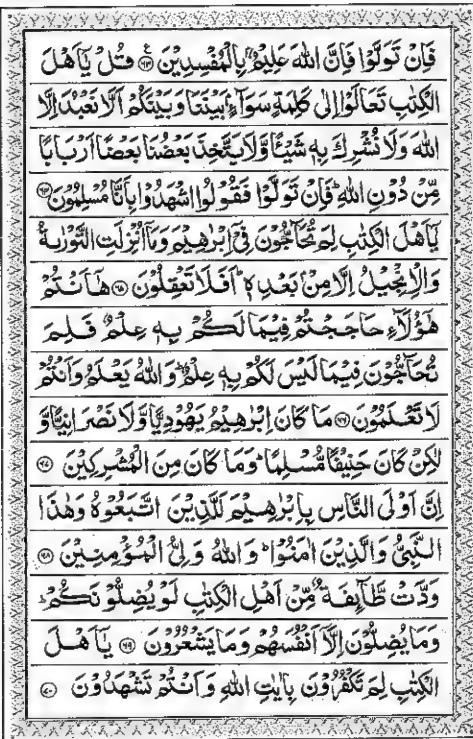 فَاِنۡ تَوَلَّوۡا فَاِنَّ اللّٰهَ عَلِیۡمٌۢ بِالۡمُفۡسِدِیۡنَ ﴿۶۳﴾ قُلۡ یٰۤاَهۡلَ
الۡکِتٰبِ تَعَالَوۡا اِلٰی کَلِمَۃٍ سَوَآءٍۭ بَیۡنَنَا وَبَیۡنَکُمۡ اَلَّا نَعۡبُدَ اِلَّا
اللّٰهَ وَلَا نُشۡرِكَ بِهٖ شَیۡـًٔا وَّلَا یَتَّخِذَ بَعۡضُنَا بَعۡضًا اَرۡبَابًا
مِّنۡ دُوۡنِ اللّٰهِ ؕ فَاِنۡ تَوَلَّوۡا فَقُوۡلُوا اشۡهَدُوۡا بِاَنَّا مُسۡلِمُوۡنَ ﴿۶۴﴾
یٰۤاَهۡلَ الۡکِتٰبِ لِمَ تُحَآجُّوۡنَ فِیۡۤ اِبۡرٰهِیۡمَ وَمَاۤ اُنۡزِلَتِ التَّوۡرٰىۃُ
وَالۡاِنۡجِیۡلُ اِلَّا مِنۡۢ بَعۡدِهٖ ؕ اَفَلَا تَعۡقِلُوۡنَ ﴿۶۵﴾ هٰۤاَنۡتُمۡ
هٰۤؤُلَآءِ حَاجَجۡتُمۡ فِیۡمَا لَکُمۡ بِهٖ عِلۡمٌ فَلِمَ
تُحَآجُّوۡنَ فِیۡمَا لَیۡسَ لَکُمۡ بِهٖ عِلۡمٌ ؕ وَاللّٰهُ یَعۡلَمُ وَاَنۡتُمۡ
لَا تَعۡلَمُوۡنَ ﴿۶۶﴾ مَا کَانَ اِبۡرٰهِیۡمُ یَهُوۡدِیًّا وَّلَا نَصۡرَانِیًّا وَّ
لٰکِنۡ کَانَ حَنِیۡفًا مُّسۡلِمًا ؕ وَمَا کَانَ مِنَ الۡمُشۡرِکِیۡنَ ﴿۶۷﴾
اِنَّ اَوۡلَی النَّاسِ بِاِبۡرٰهِیۡمَ لَلَّذِیۡنَ اتَّبَعُوۡهُ وَهٰذَا
النَّبِیُّ وَالَّذِیۡنَ اٰمَنُوۡا ؕ وَاللّٰهُ وَلِیُّ الۡمُؤۡمِنِیۡنَ ﴿۶۸﴾
وَدَّتۡ طَّآئِفَۃٌ مِّنۡ اَهۡلِ الۡکِتٰبِ لَوۡ یُضِلُّوۡنَکُمۡ ؕ
وَمَا یُضِلُّوۡنَ اِلَّاۤ اَنۡفُسَهُمۡ وَمَا یَشۡعُرُوۡنَ ﴿۶۹﴾ یٰۤاَهۡلَ
الۡکِتٰبِ لِمَ تَکۡفُرُوۡنَ بِاٰیٰتِ اللّٰهِ وَاَنۡتُمۡ تَشۡهَدُوۡنَ ﴿۷۰﴾